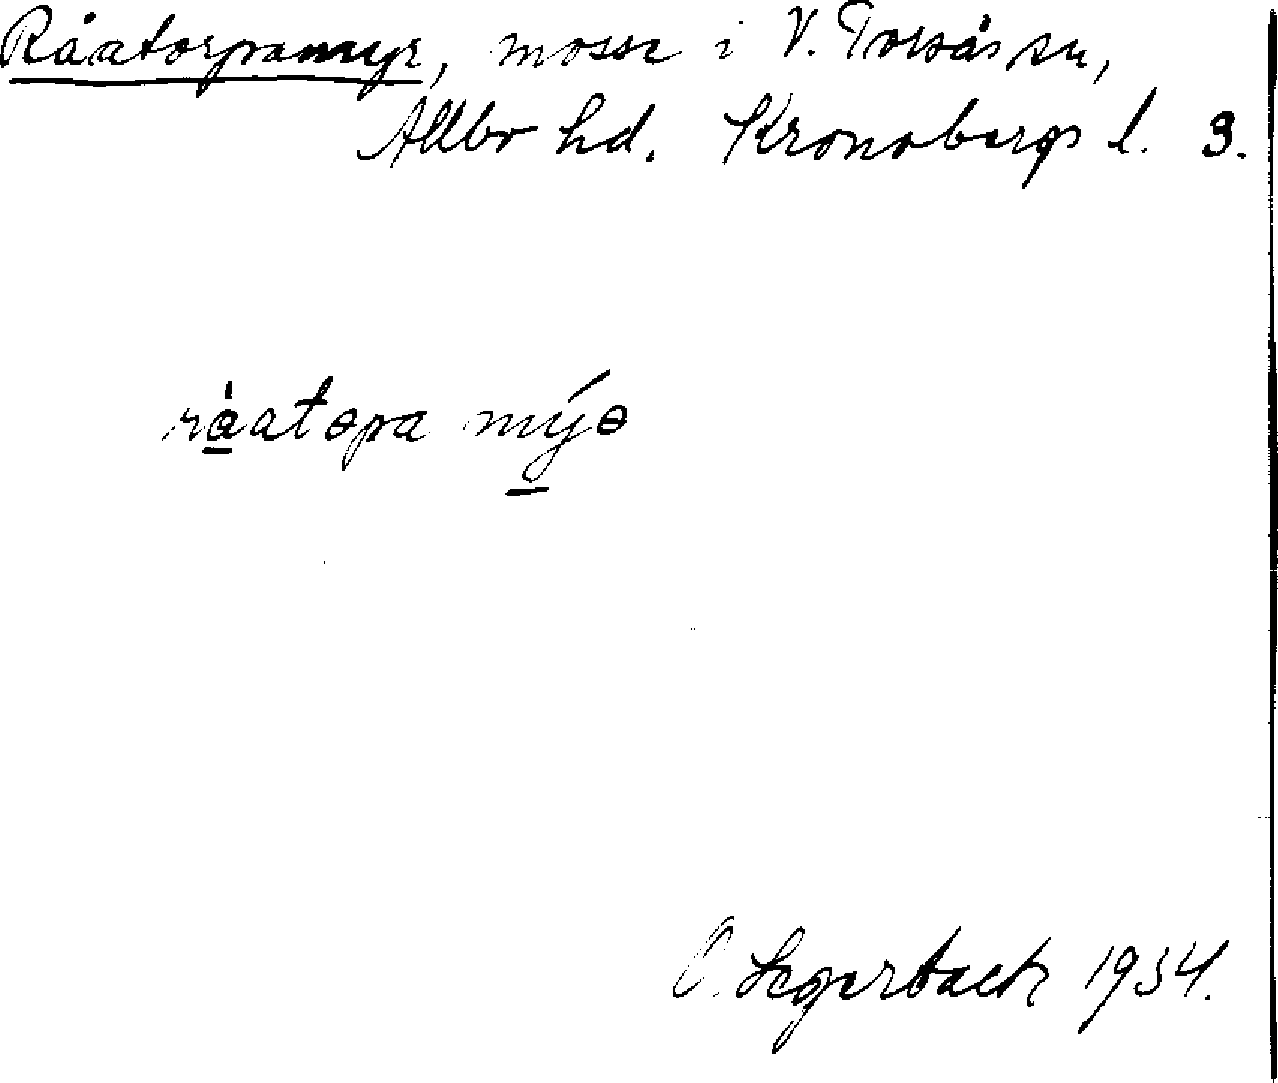 Råatorpamyr, mosse i V. Torsås sn,
Allbo hd. Kronobergs l. 3.
råatɵpa mýɵ
O. Segerbäck 1934.